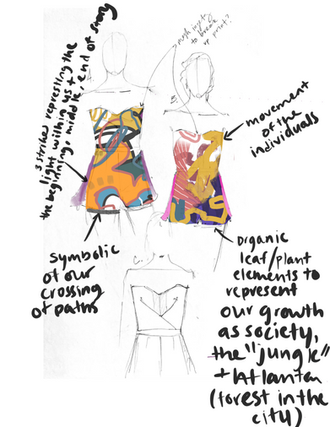 3 stripes representing the
light within us +
the beginning, middle, end of song
movement
of the
individuals
symbolic
of our
crossing
of paths
organic
leaf/plant
elements to
represent
our growth
as society,
the "jungle"
+ Atlanta
(forest in the
city)